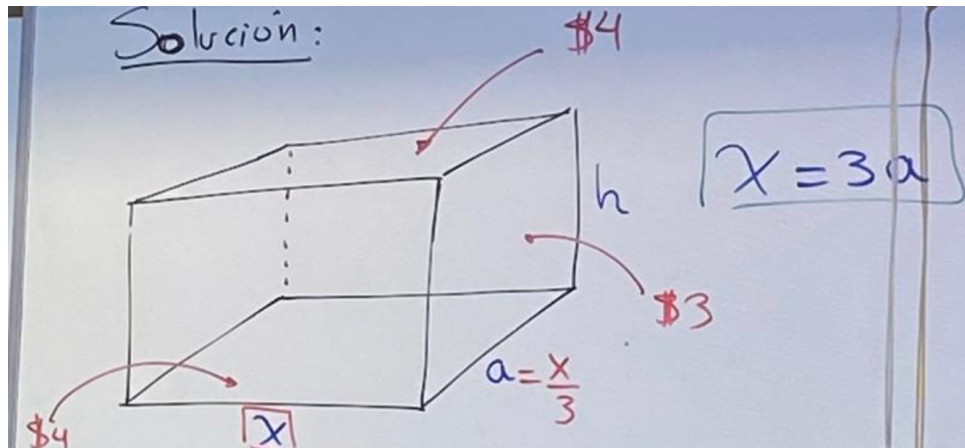 Solución:
$4
h
x = 3a
$3
a = x/3
$4
x